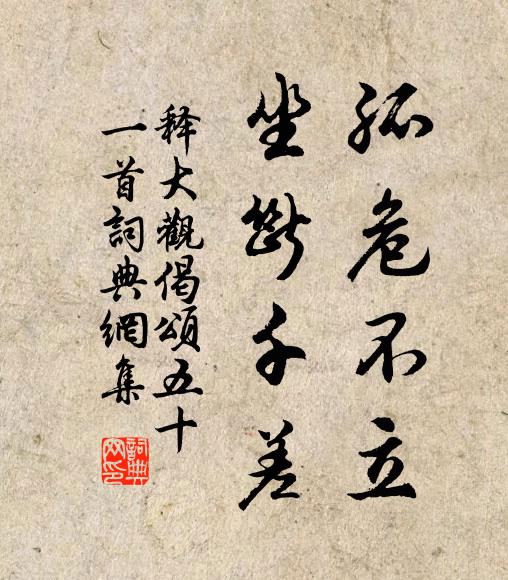 孤危不立
坐斷千差
釋大觀偈頌五十
一首詞典網集
詞典
网印